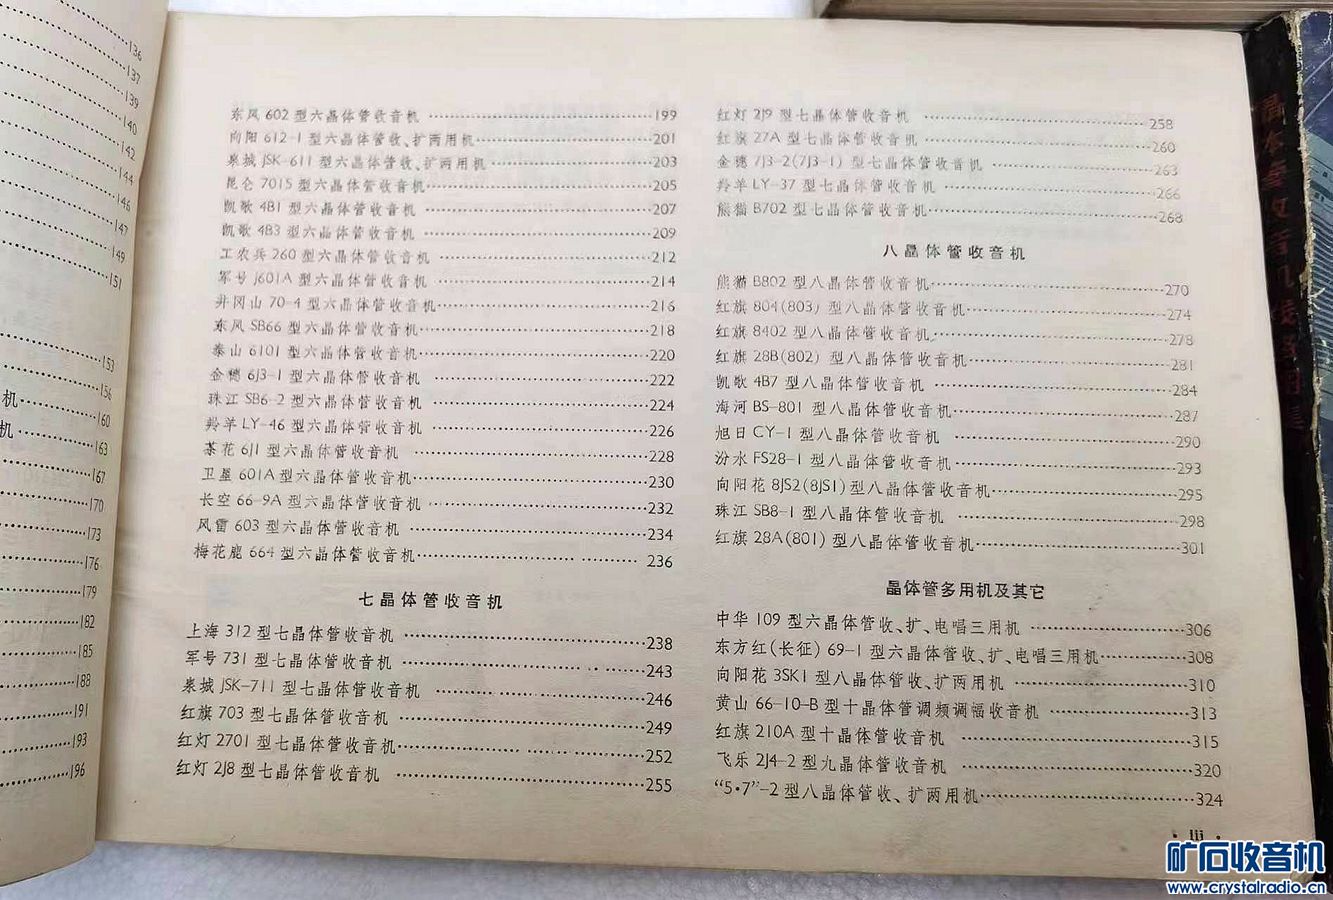 136
137
139
140
142
144
146
147
149
151
153
156
机 160
机 163
167
170
173
176
179
182
185
188
191
193
196
东风 602 型六晶体管收音机 199
向阳 612-1 型六晶体管收、扩两用机 201
泉城 JSK-611 型六晶体管收、扩两用机 203
昆仑 7015 型六晶体管收音机 205
凯歌 4B1 型六晶体管收音机 207
凯歌 4B3 型六晶体管收音机 209
工农兵 260 型六晶体管收音机 212
军号 J601A 型六晶体管收音机 214
井冈山 70-4 型六晶体管收音机 216
东风 SB66 型六晶体管收音机 218
泰山 6101 型六晶体管收音机 220
金穗 6J3-1 型六晶体管收音机 222
珠江 SB6-2 型六晶体管收音机 224
羚羊 LY-46 型六晶体管收音机 226
茶花 6J1 型六晶体管收音机 228
卫星 601A 型六晶体管收音机 230
长空 66-9A 型六晶体管收音机 232
风雷 603 型六晶体管收音机 234
梅花鹿 664 型六晶体管收音机 236
七晶体管收音机
上海 312 型七晶体管收音机 238
军号 731 型七晶体管收音机 243
泉城 JSK-711 型七晶体管收音机 246
红旗 703 型七晶体管收音机 249
红灯 2701 型七晶体管收音机 252
红灯 2J8 型七晶体管收音机 255
红灯 2J9 型七晶体管收音机 258
红旗 27A 型七晶体管收音机 260
金穗 7J3-2(7J3-1) 型七晶体管收音机 263
羚羊 LY-37 型七晶体管收音机 266
熊猫 B702 型七晶体管收音机 268
八晶体管收音机
熊猫 B802 型八晶体管收音机 270
红旗 804(803) 型八晶体管收音机 274
红旗 8402 型八晶体管收音机 278
红旗 28B(802) 型八晶体管收音机 281
凯歌 4B7 型八晶体管收音机 284
海河 BS-801 型八晶体管收音机 287
旭日 CY-1 型八晶体管收音机 290
汾水 FS28-1 型八晶体管收音机 293
向阳花 8JS2(8JS1) 型八晶体管收音机 295
珠江 SB8-1 型八晶体管收音机 298
红旗 28A(801) 型八晶体管收音机 301
晶体管多用机及其它
中华 109 型六晶体管收、扩、电唱三用机 306
东方红(长征) 69-1 型六晶体管收、扩、电唱三用机 308
向阳花 3SK1 型八晶体管收、扩两用机 310
黄山 66-10-B 型十晶体管调频调幅收音机 313
红旗 210A 型十晶体管收音机 315
飞乐 2J4-2 型九晶体管收音机 320
“5·7”-2 型八晶体管收、扩两用机 324
· iii ·
矿石收音机
www.crystalradio.cn